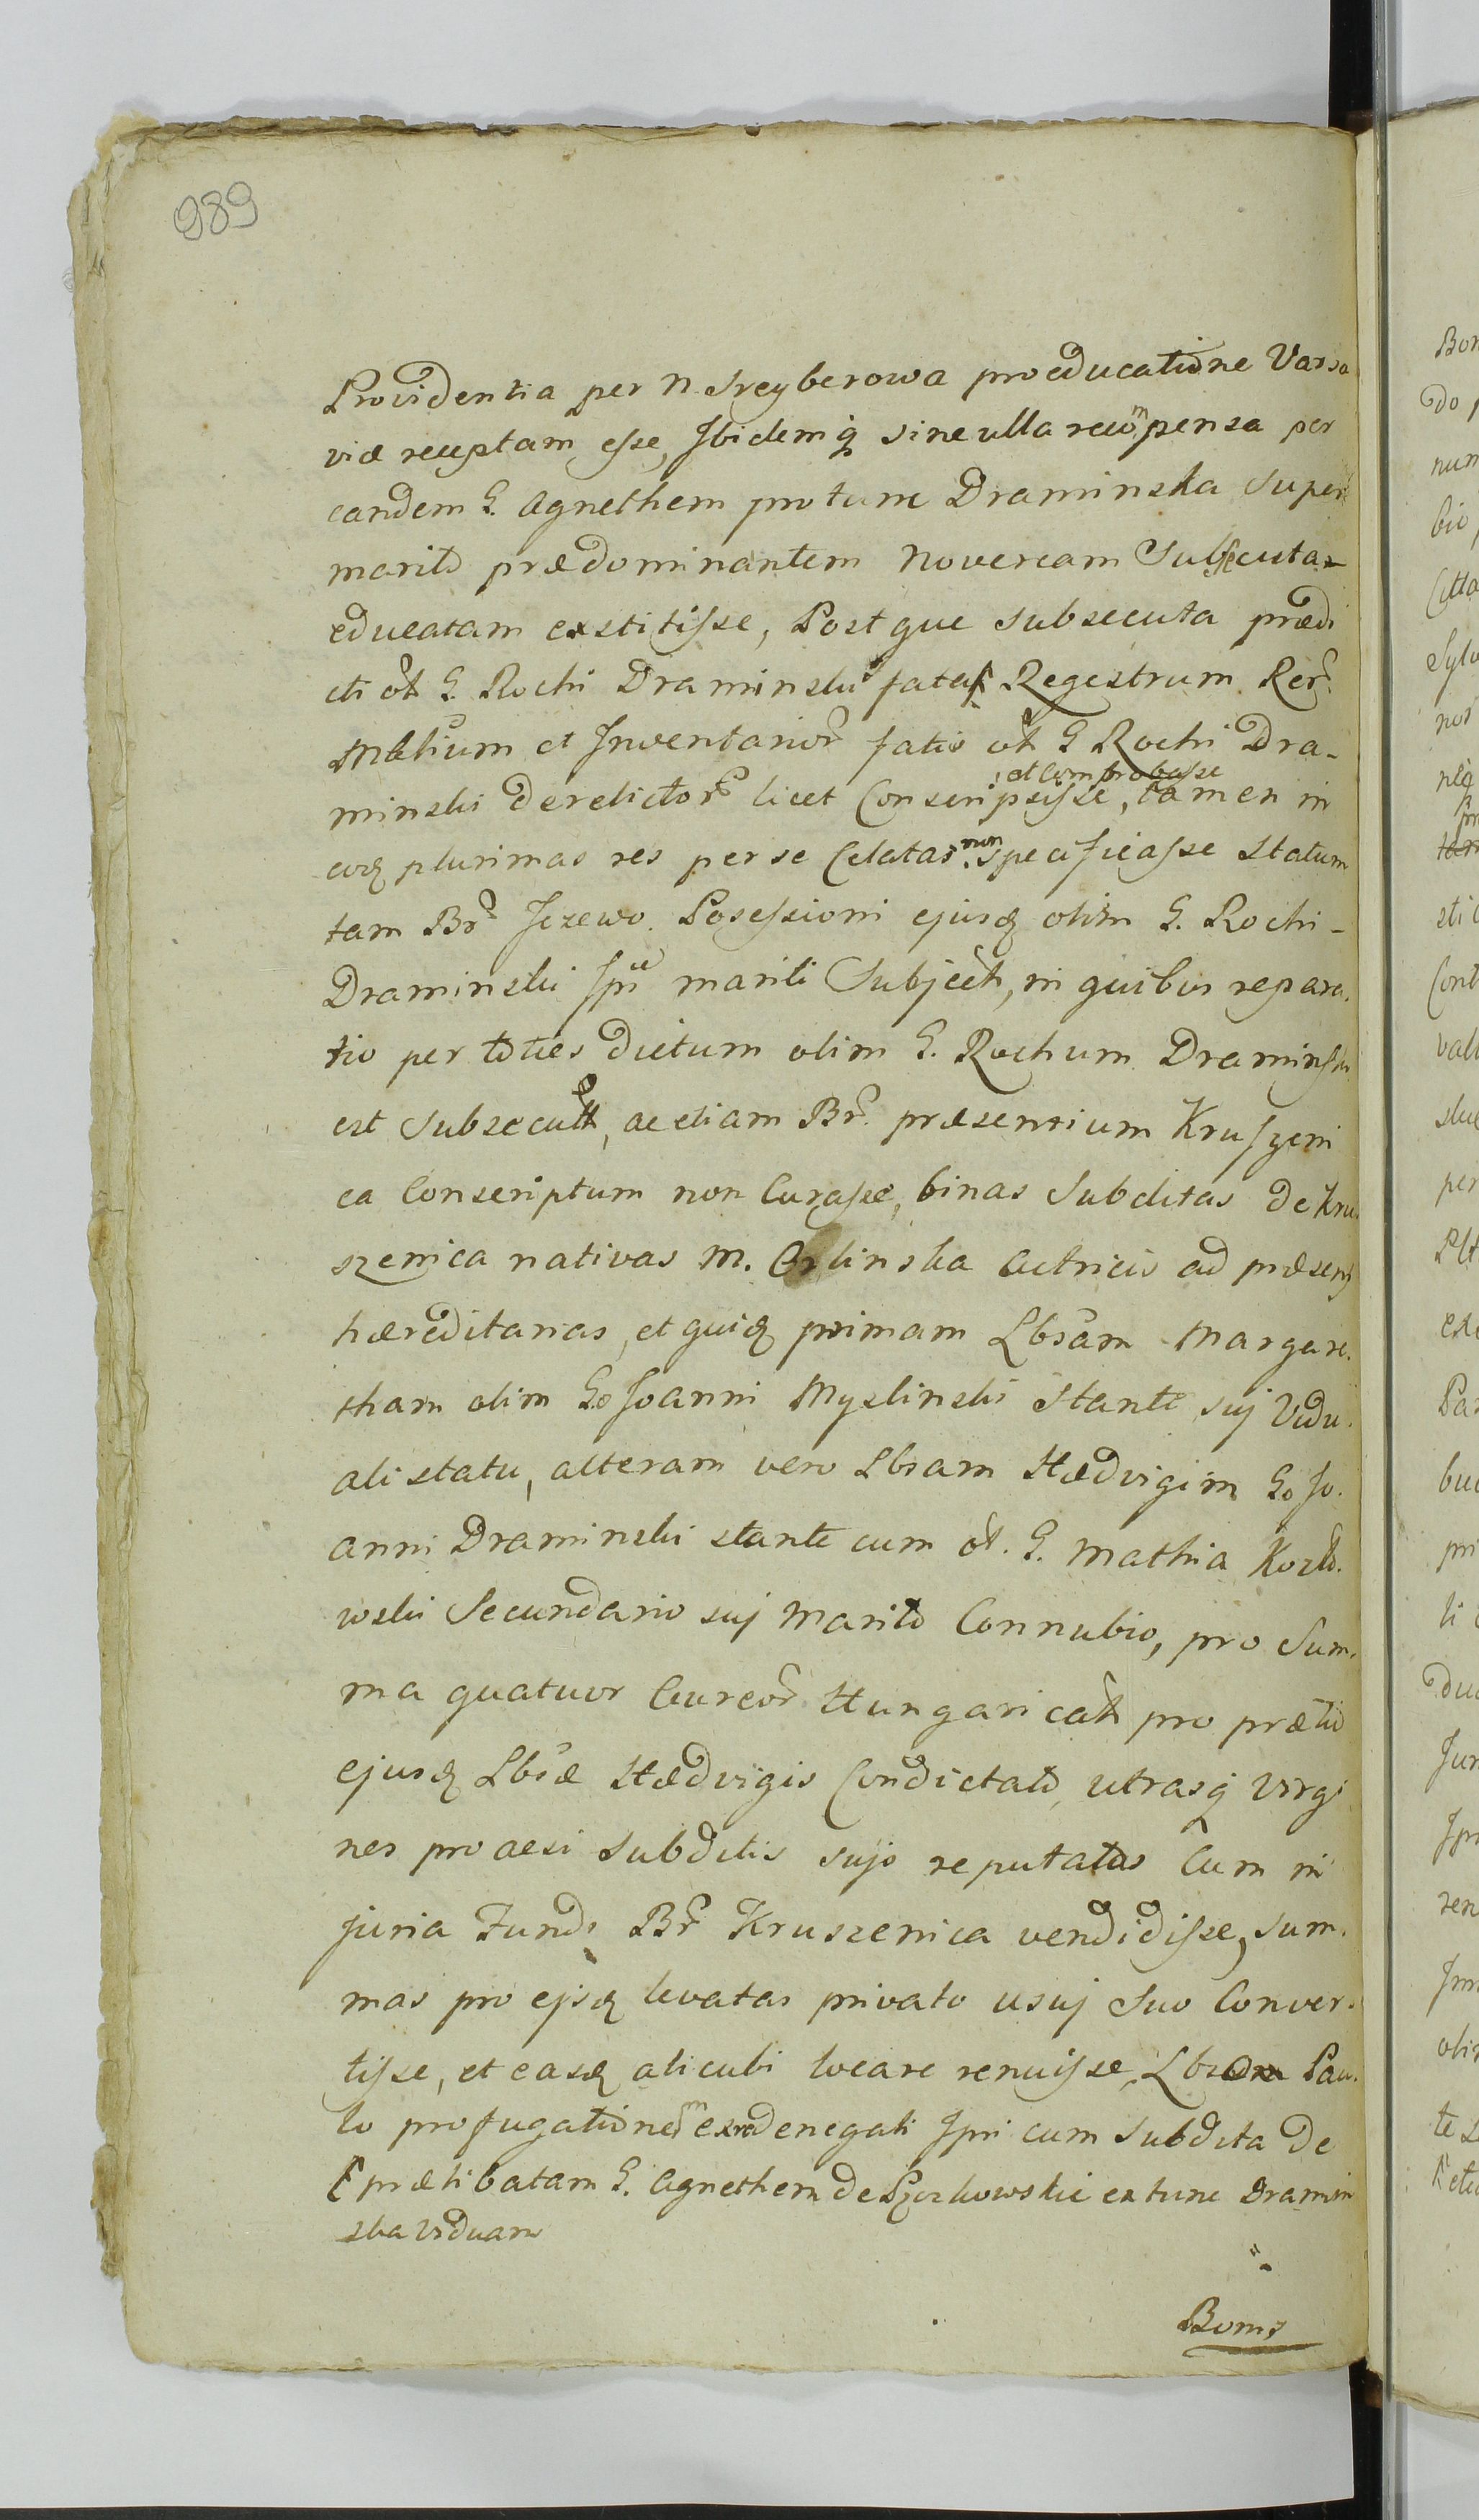 989
Providentia per N. Sreyberowa pro educatione Varsa
viæ receptam esse, Ibidemq; sine ulla recompensa per
eandem G. Agnethem pro tunc Draminska super
marito prædominantem Novercam Subsecuta
educatam exstitisse, Post que subsecuta prædi
cti ol. G. Rochi Draminski fata Regestrum Rer.
Mobilium et Inventarior. fatis ol. G Rochi Dra-
minski derelictor. licet Conscripsisse, et comprobasse tamen in
eoq; plurimas res per se Celatas non specificasse statum
tam Br. Jezewo Posessioni ejusq; olim G. Rochi-
Draminski Ipsi mariti Subject, in quibus repara-
tio per toties dictum olim G. Rochum Draminski
est Subsecuta, ac etiam Br. præsentium Kruszeni
ca Conscriptum non Curasse, binas Subditas de Kru-
szenica nativas M. Orlinska Actricis ad præsens
hæreditarias, et quiq; primam Lbsam Margare-
tham olim Go Joanni Myslinski stante suj Vidu-
ali statu, alteram vero Lbsam Hædvigim Go Jo-
anni Draminski stante cum ol. G. Mathia Kozlo-
wski Secundario suj Marito Connubio, pro Sum-
ma quatuor Aureor. Hungaricah pro prætio
ejusq; Lbsæ Hædvigis Condictato, utrasq; Virgi
nes pro acsi subditis sujs reputatas Cum in
juria Fundi Br. Kruszenica vendidisse, sum-
mas pro ejsq; levatas privato usuj Suo Conver-
tisse, et easq; alicubi locare renuisse, Pau-
lo profugatione denegati Ipsi cum subdita De
prætibatam G. Agnethem de ex tunc Dramin
ska Viduam
Boms
Bon